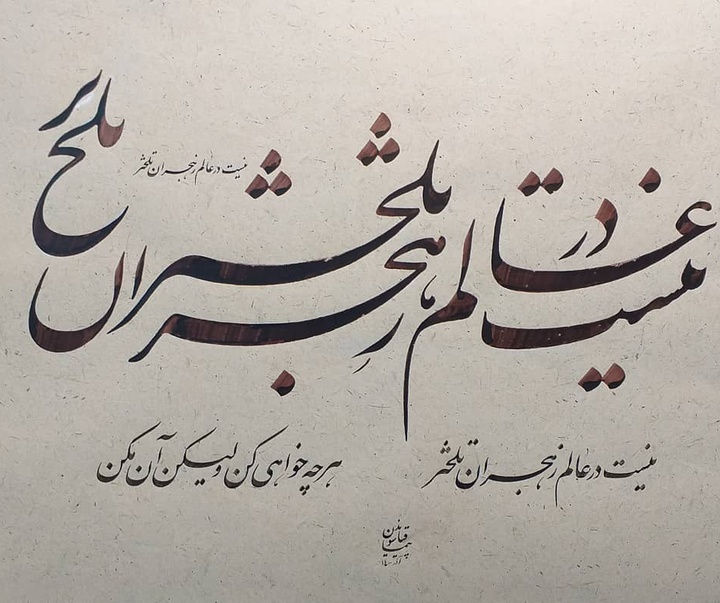 نیست در عالم ز هجران تلختر
نیست در عالم ز هجران تلختر
نیست در عالم ز هجران تلختر هرچه خواهی کن ولیکن آن مکن